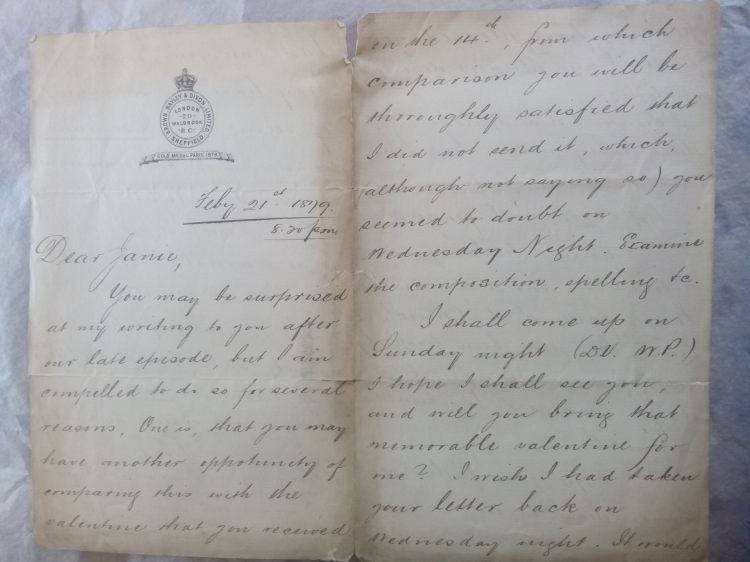 BROWN, BAYLEY & DIXON, LIMITED
SHEFFIELD
LONDON
20
WALBROOK
E.C.
GOLD MEDAL PARIS 1878
Feby 21st 1879
8.30 pm
Dear Janie,
You may be surprised
at my writing to you after
our late episode, but I am
compelled to do so for several
reasons. One is, that you may
have another oppotunity of
comparing this with the
valentine that you received
on the 14th, from which
comparison you will be
thoroughly satisfied that
I did not send it, which,
(although not saying so) you
seemed to doubt on
Wednesday Night. Examine
the composition, spelling &c.
I shall come up on
Sunday night (D.V. W.P.)
I hope I shall see you,
and will you bring that
memorable valentine for
me? I wish I had taken
your letter back on
Wednesday night. It would